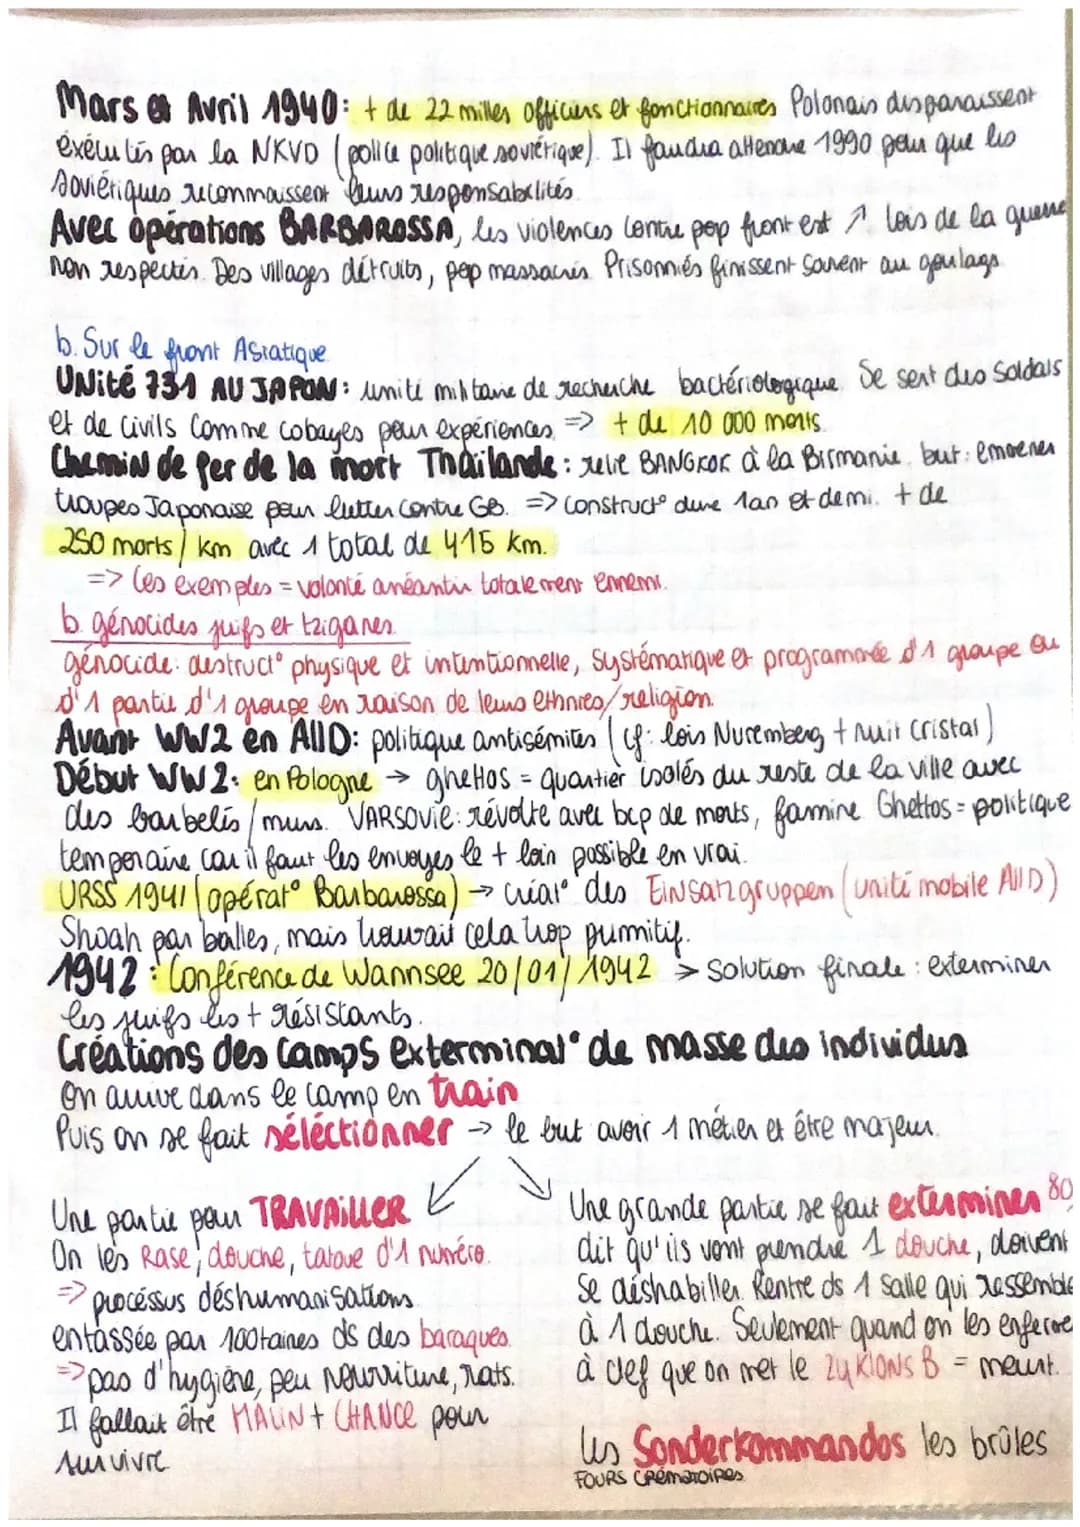 Mars et Avril 1940: + de 22 milles officiers et fonctionnaires Polonais disparaissent
éxécutés par la NKVD (police politique soviétique). Il faudra attendre 1990 pour que les
soviétiques reconnaissent leurs responsabilités.
Avec opérations BARBAROSSA, les violences contre pop front est ↗. Lois de la guerre
non respectés. Des villages détruits, pop massacrés. Prisonniés finissent souvent au goulags.
b. Sur le front Asiatique
UNité 731 AU JAPON: unité militaire de recherche bactériologique. Se sert des Soldats
et de civils comme cobayes pour expériences => + de 10 000 morts.
Chemin de fer de la mort Thaïlande: relie BANGKOK à la Birmanie. but: emmener
troupes Japonaise pour lutter contre GB. => construct° dure 1an et demi. + de
250 morts/km avec 1 total de 415 km.
=> Ces exemples = volonté anéantir totalement ennemi.
b. génocides juifs et tziganes.
génocide: destruct° physique et intentionnelle, systématique et programmée d'1 groupe ou
d'1 partie d'1 groupe en raison de leurs ethnies/religion.
Avant WW2 en AllD: politique antisémites (cf: lois Nuremberg + nuit cristal)
Début WW2: en Pologne → ghettos = quartier isolés du reste de la ville avec
des barbelés/murs. VARSOVIE: révolte avec bcp de morts, famine. Ghettos = politique
temporaire car il faut les envoyes le + loin possible en vrai.
URSS 1941 (opérat° Barbarossa) → créat° des Einsatzgruppen (unité mobile AllD)
Shoah par balles, mais trouvait cela trop primitif.
1942: Conférence de Wannsee 20/01/1942 → solution finale: exterminer
les juifs les + résistants.
Créations des camps exterminat° de masse des individus
On arrive dans le camp en train
Puis on se fait séléctionner → le but avoir 1 métier et être majeur.
Une partie pour TRAVAiLLER
On les Rase, douche, tatoue d'1 numéro.
=> procéssus déshumanisations
entassée par 100taines ds des baraques.
=> pas d'hygiène, peu nourriture, rats.
Il fallait être MALIN + CHANCE pour
survivre
Une grande partie se fait exterminer 80
dit qu'ils vont prendre 1 douche, doivent
se déshabiller. Rentre ds 1 salle qui ressemble
à 1 douche. Seulement quand on les enferme
à clef que on met le ZyKlONS B = meurt.
Les Sonderkommandos les brûles
FOURS CRéMATOIRES